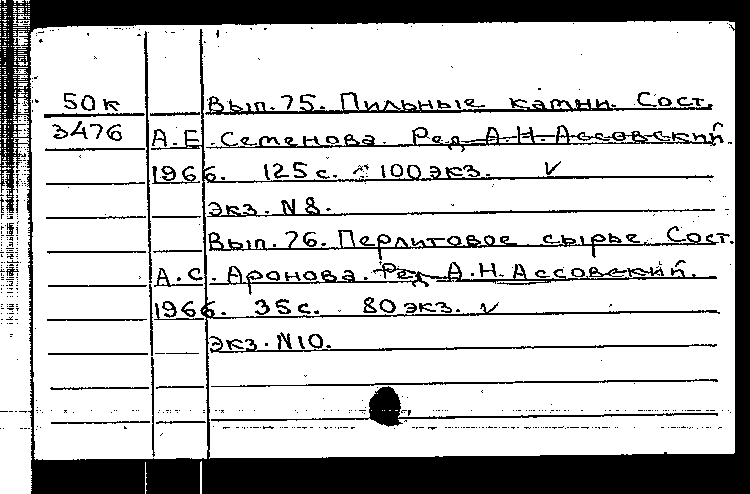 50к Вып. 75. Пильные камни. Сост.
3476 А.Е. Семенова. Ред. А.Н. Ассовский.
1966. 125 с. 100 экз. ✓
экз. N 8.
Вып. 76. Перлитовое сырье. Сост.
А.С. Аронова. Ред. А.Н. Ассовский.
1966. 35 с. 80 экз. ✓
экз. N10.